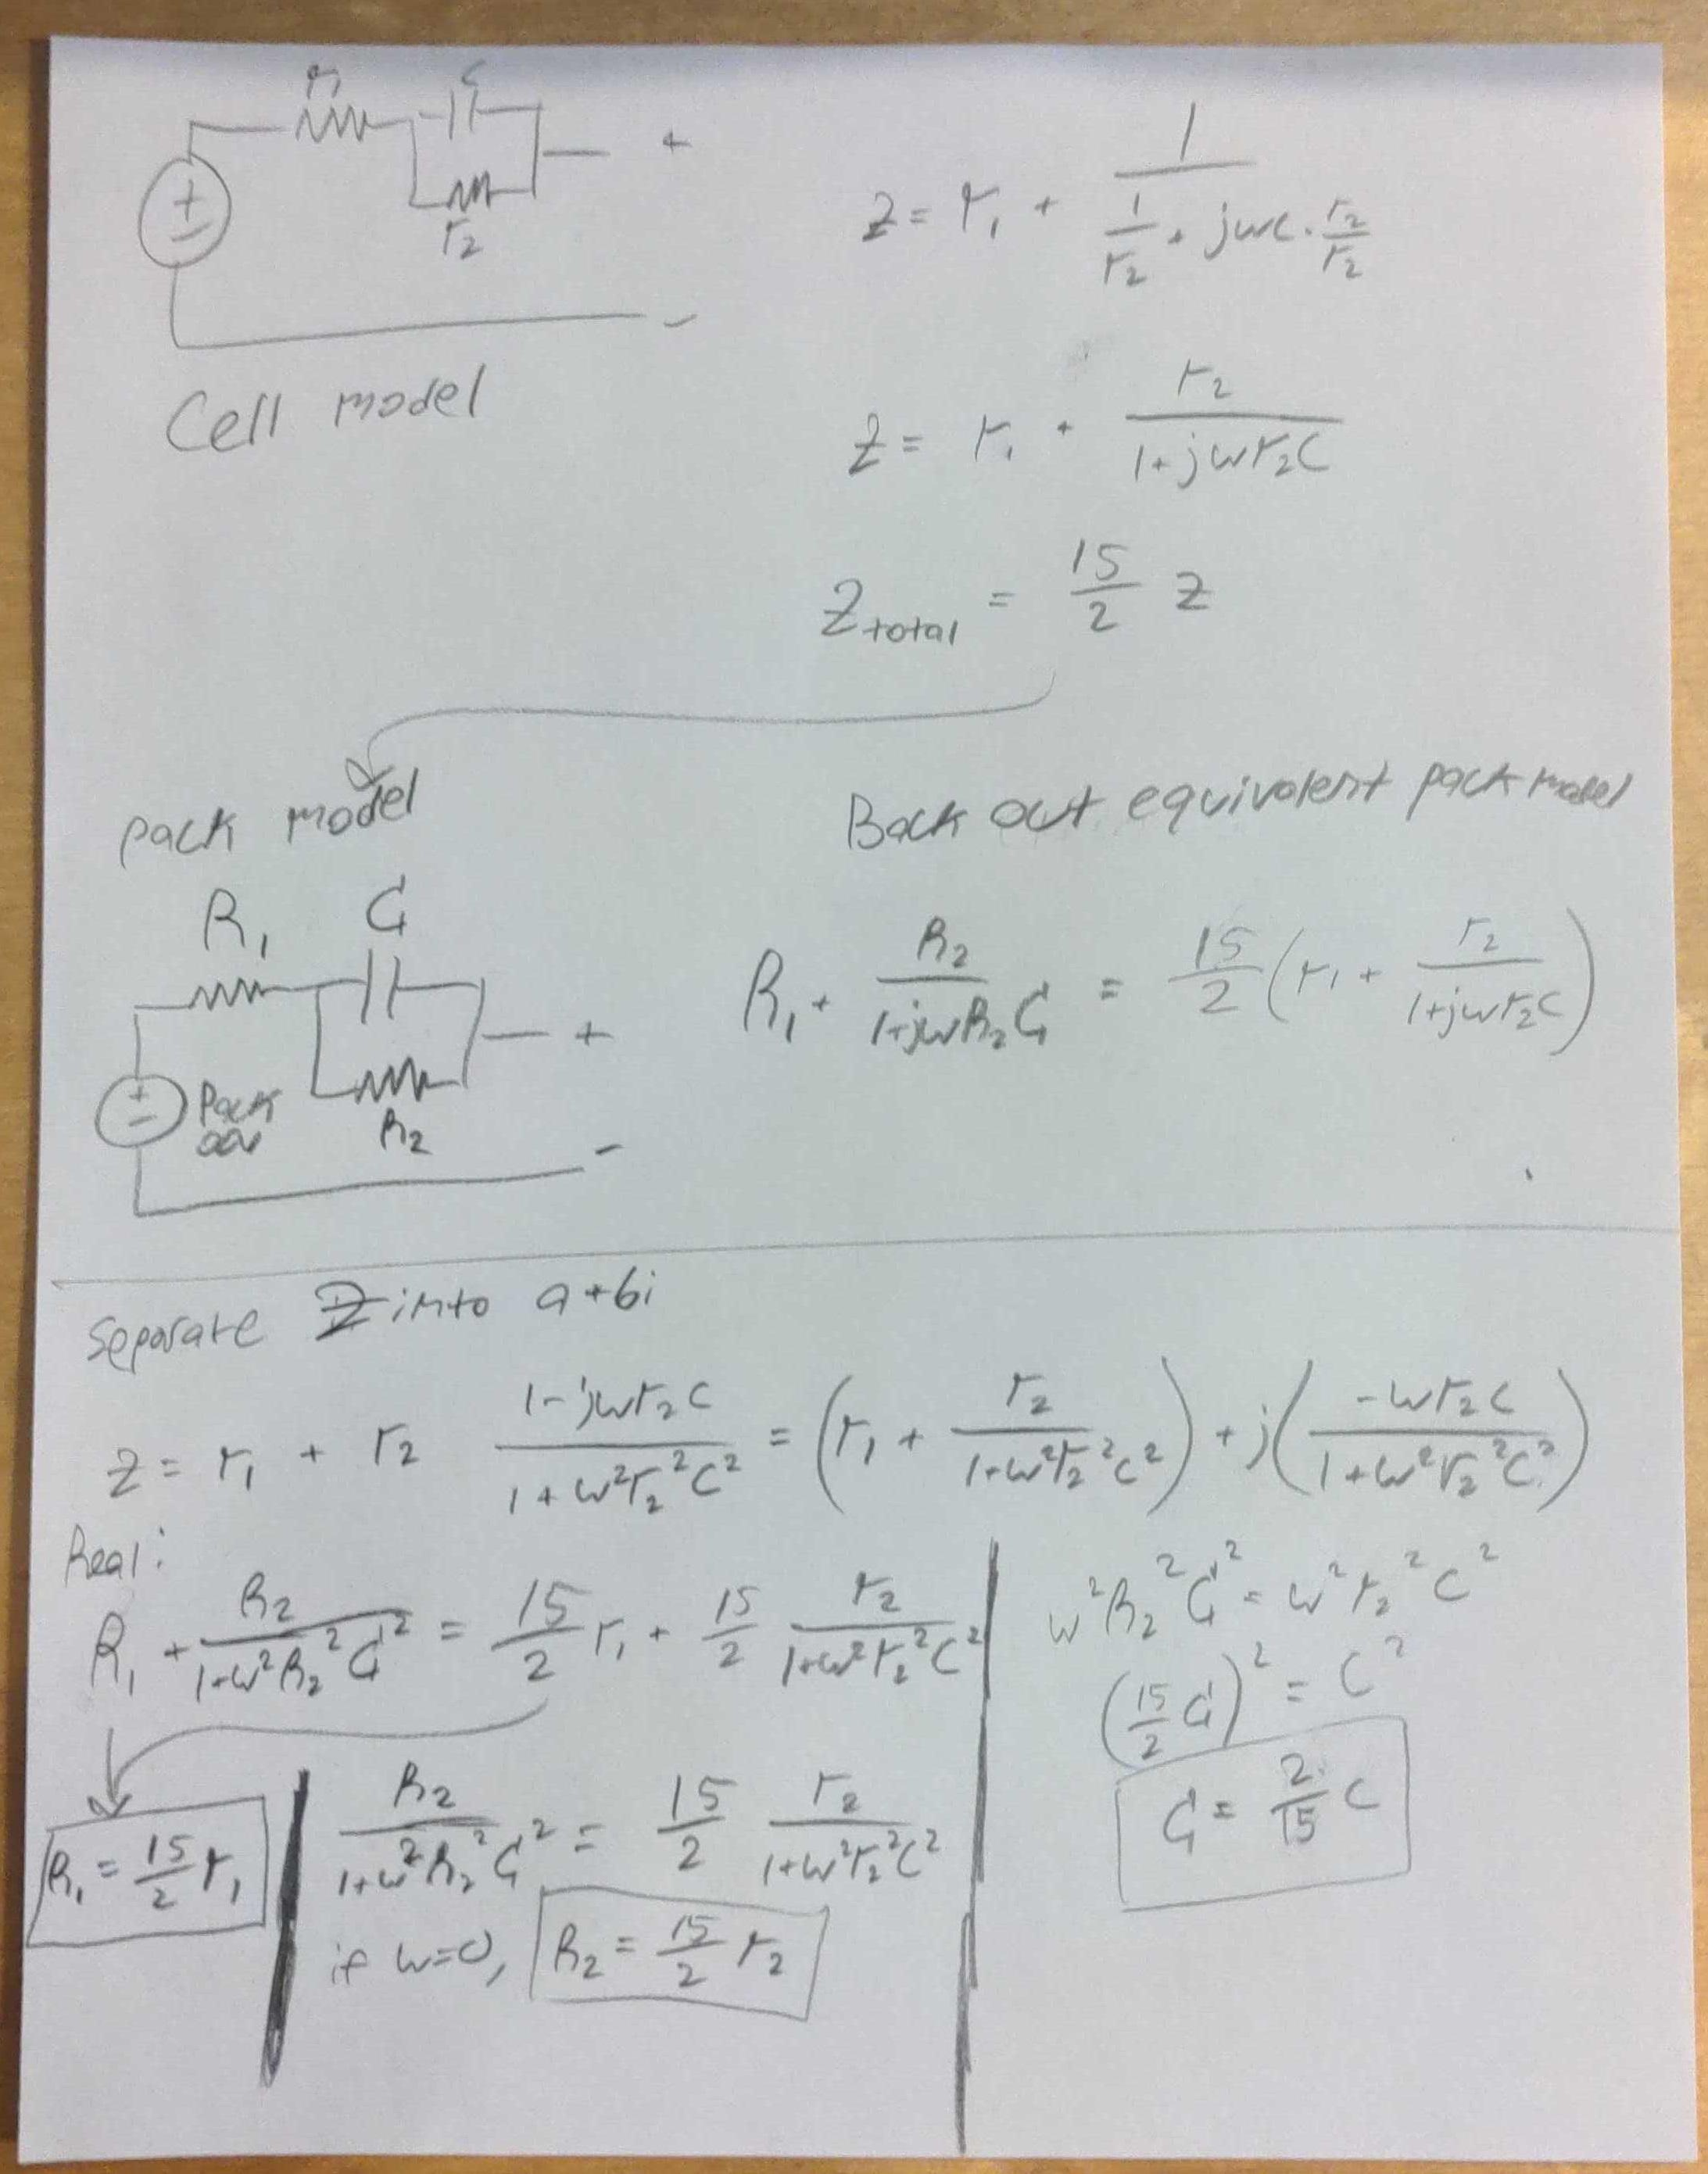 r₁ C
+
r₂
-
Cell model
z = r₁ + 1 / (1/r₂ + jωc · r₂/r₂)
z = r₁ + r₂ / (1+jωr₂C)
Z total = 15/2 Z
pack model
R₁ C₁
+
Pack
R₂
-
Back out equivalent pack model
R₁ + R₂ / (1+jωR₂C₁) = 15/2 (r₁ + r₂ / (1+jωr₂C))
Separate Z into a+bi
z = r₁ + r₂ (1-jωr₂C) / (1+ω²r₂²C²) = (r₁ + r₂ / (1+ω²r₂²C²)) + j(-ωr₂C / (1+ω²r₂²C²))
Real:
R₁ + R₂ / (1+ω²R₂²C₁²) = 15/2 r₁ + 15/2 r₂ / (1+ω²r₂²C²)
R₁ = 15/2 r₁
R₂ / (1+ω²R₂²C₁²) = 15/2 r₂ / (1+ω²r₂²C²)
if ω=0, R₂ = 15/2 r₂
ω²R₂²C₁² = ω²r₂²C²
(15/2 C₁)² = C²
C₁ = 2/15 C